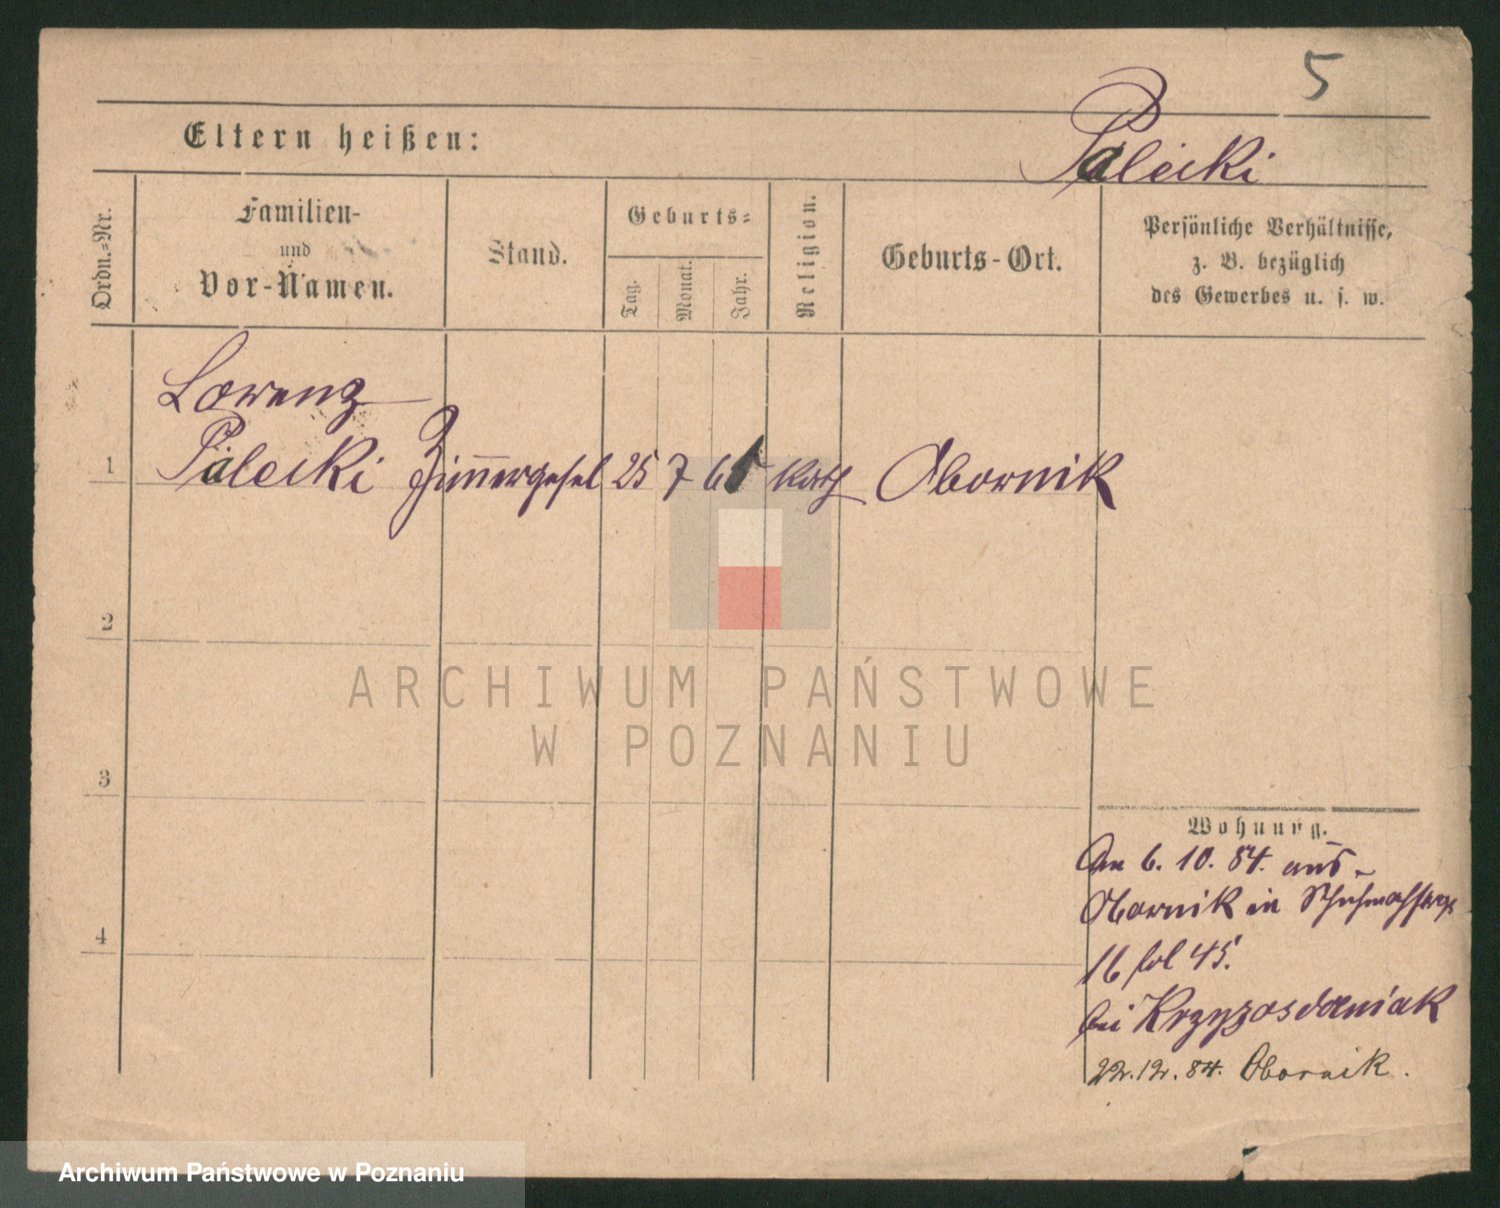 5
Eltern heißen:
Palecki
Ordn.-Nr.
Familien-
und
Vor-Namen.
Stand.
Geburts-
Tag.
Monat.
Jahr.
Religion.
Geburts-Ort.
Persönliche Verhältnisse,
z. B. bezüglich
des Gewerbes u. s. w.
Lorenz
1 Palecki Zimmergesel 25 7 65 Kath Obornik
2
ARCHIWUM PAŃSTWOWE
W POZNANIU
3
Wohnung.
Am 6. 10. 84. aus
Obornik in
4
16 bei
bei
22. 12. 84. Obornik.
Archiwum Państwowe w Poznaniu